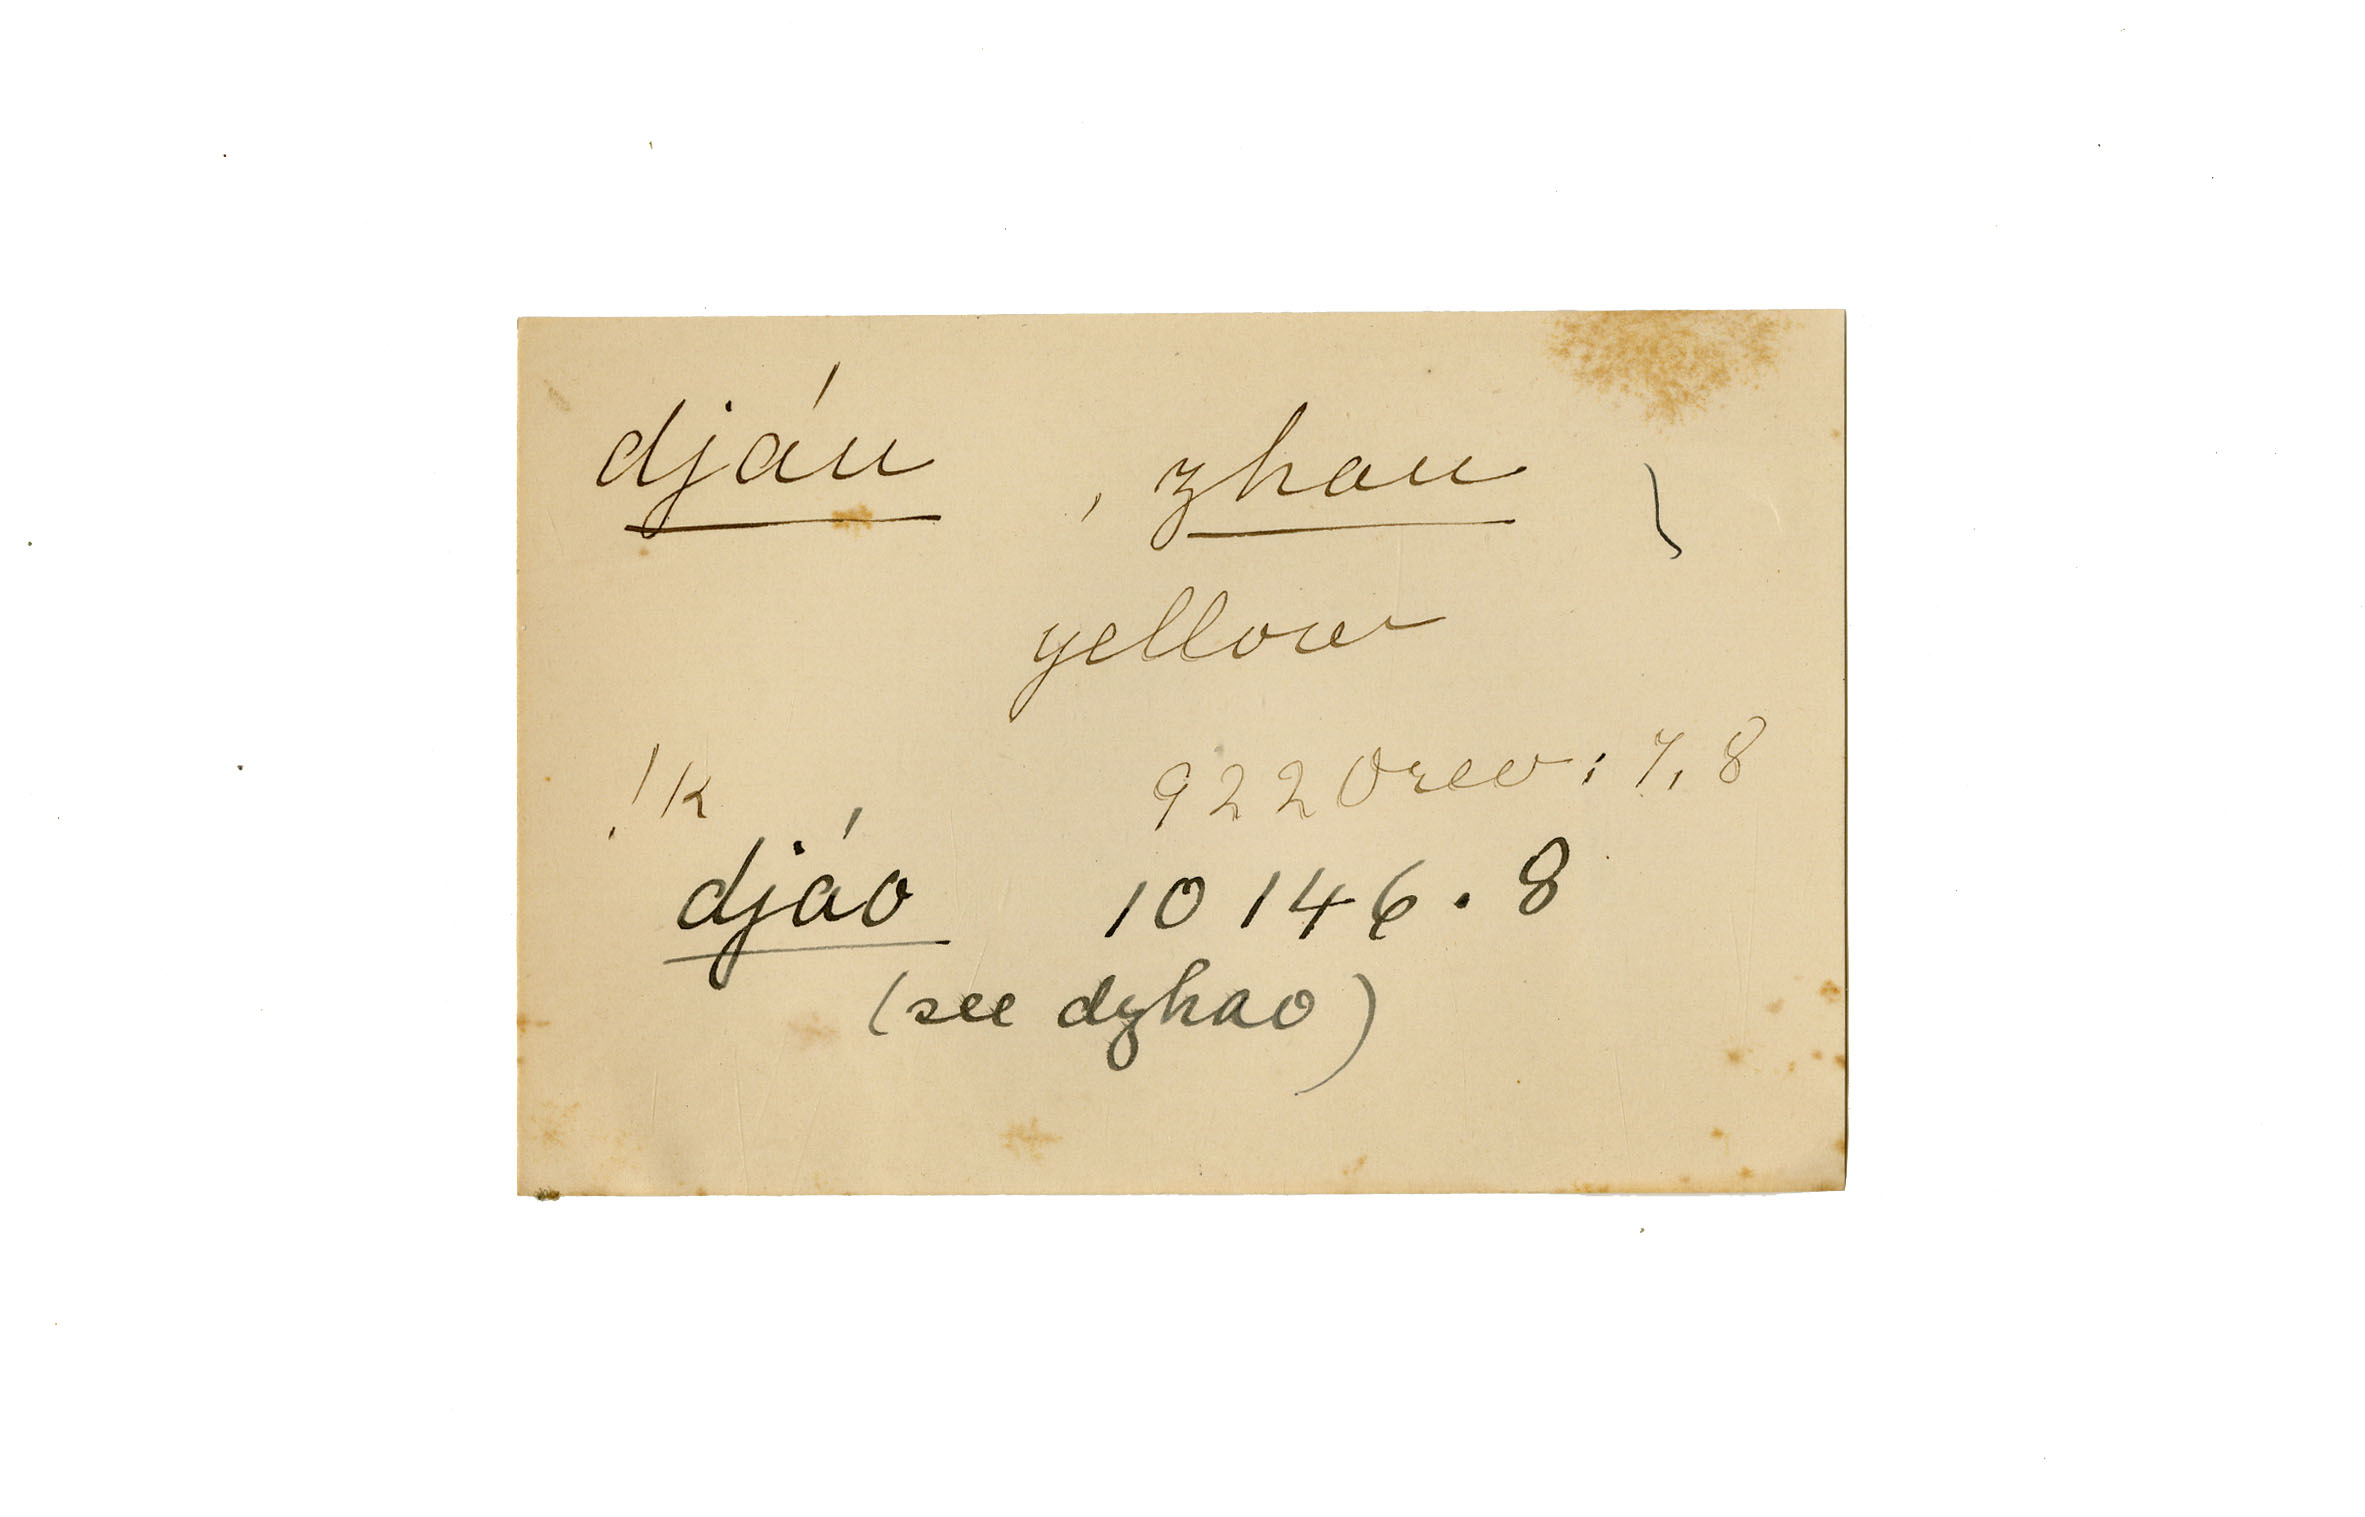 djáu , zhau )
yellow
!k 9220rev: 7, 8
djáo 10146. 8
(see dzhao)